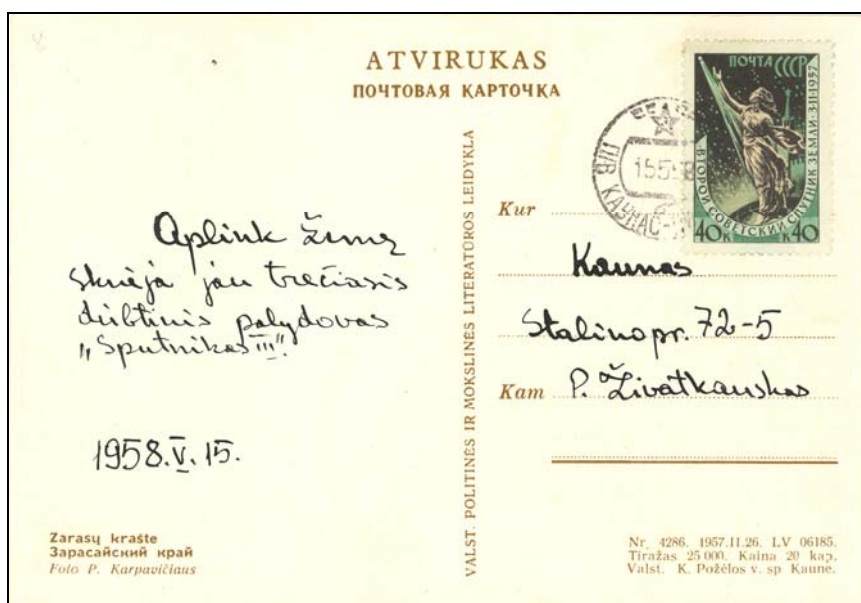 8
ATVIRUKAS
ПОЧТОВАЯ КАРТОЧКА
Aplink Žemę
skrieja jau trečiasis
dirbtinis palydovas
„Sputnikas III".
1958.V.15.
Zarasų krašte
Зарасайский край
Foto P. Karpavičiaus
VALST. POLITINĖS IR MOKSLINĖS LITERATŪROS LEIDYKLA
ПОЧТА СССР
ВТОРОЙ СОВЕТСКИЙ СПУТНИК ЗЕМЛИ·3·II·1957
40К К40
П/В КАУНАС-
Kur
Kaunas
Stalino pr. 72-5
Kam P. Živatkauskas
Nr. 4286. 1957.11.26. LV 06185.
Tiražas 25 000. Kaina 20 kap.
Valst. K. Požėlos v. sp Kaune.